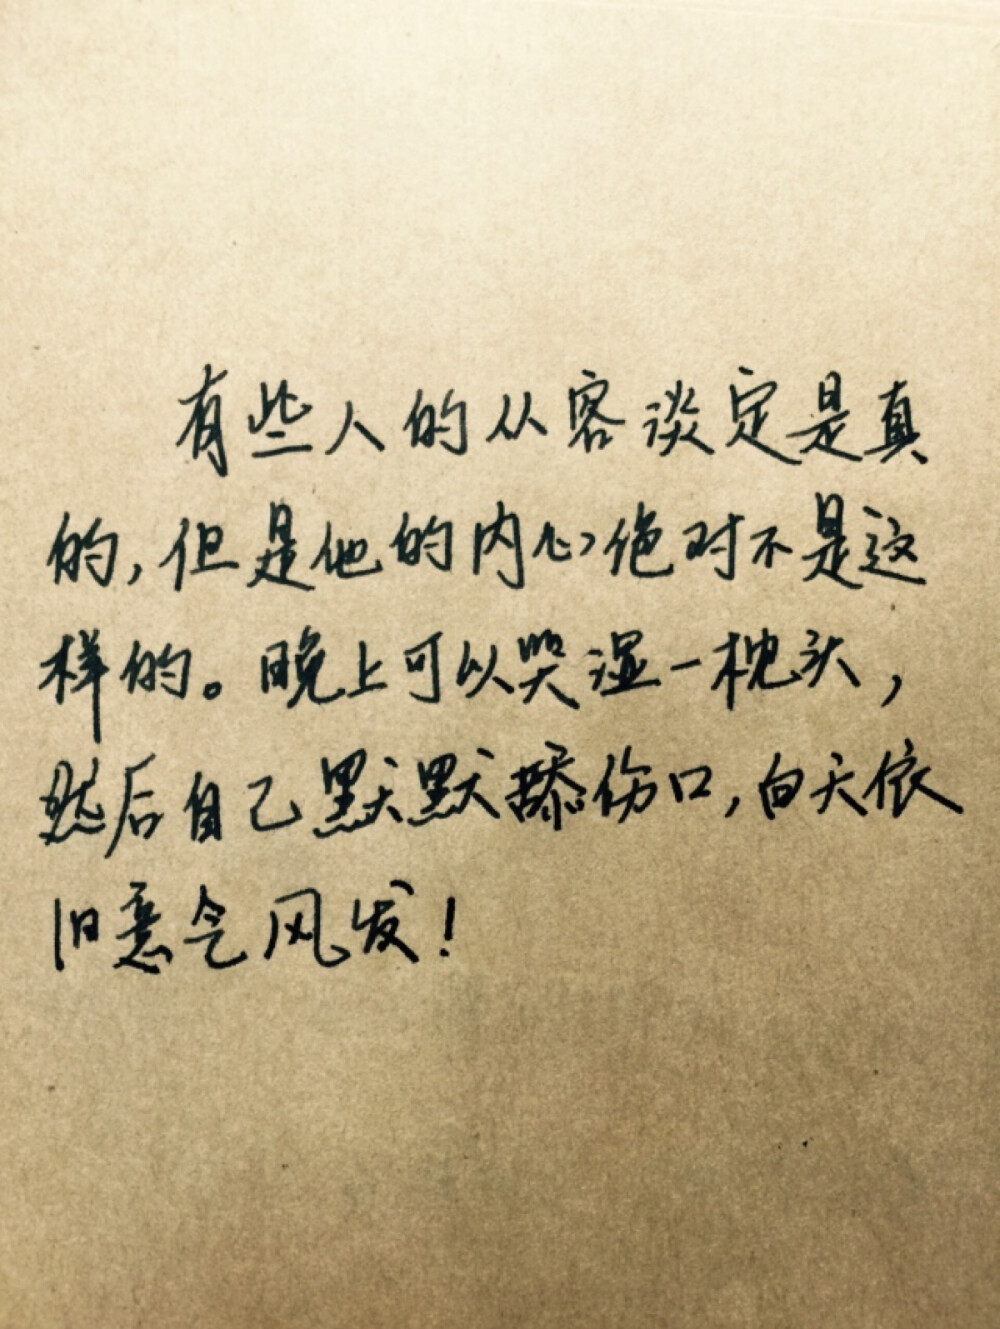 有些人的从容谈定是真
的,但是他的内心绝对不是这
样的。晚上可以哭湿一枕头,
然后自己默默舔伤口,白天依
旧意气风发!